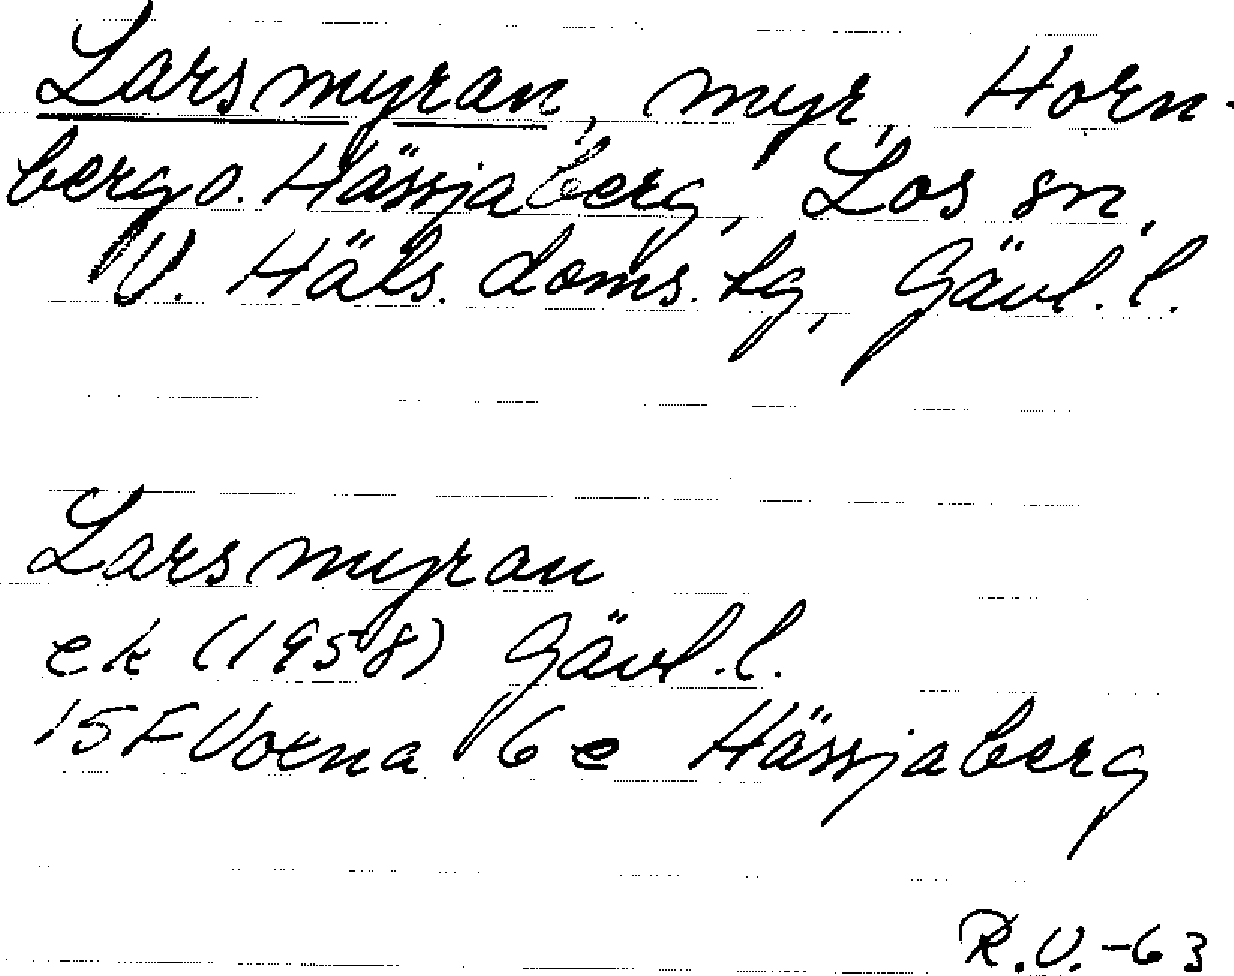 Larsmyran, myr, Horn-
berg o. Hässjaberg, Los sn,
V. Häls. doms. tg, Gävl. l.
Larsmyran
ek (1958) Gävl. l.
15F Voxna 6e Hässjaberg
R.V. -63